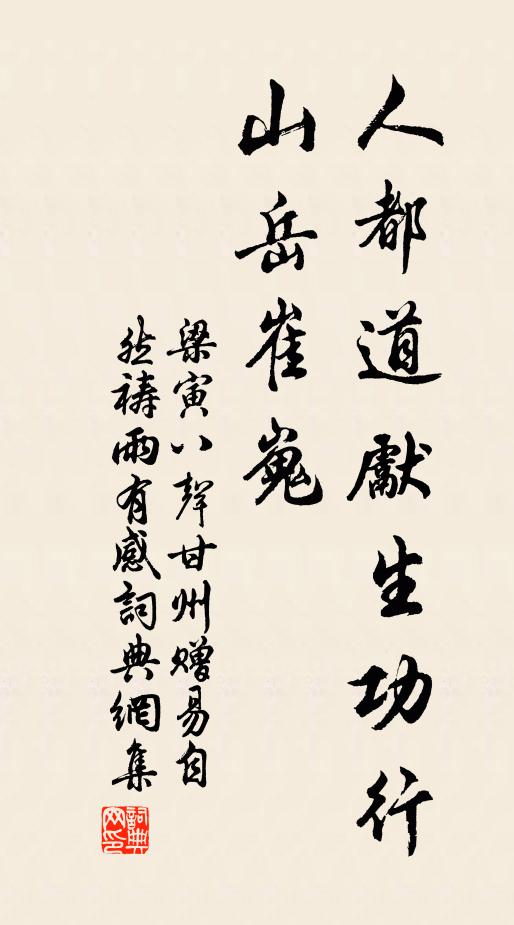 人都道獻生功行
山岳崔嵬
梁寅八聲甘州赠易自
然祷雨有感詞典網集
詞典网印